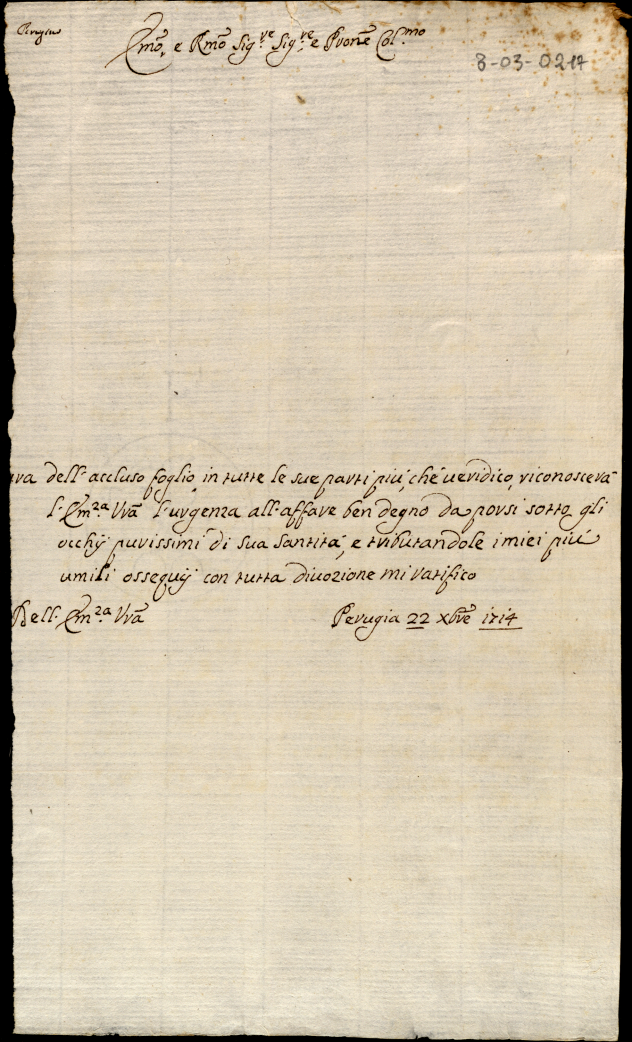 Perugia
Emo, e Rmo Sig.re Sig.re e Prone Col.mo
8-03-0217
dell'accluso foglio, in tutte le sue parti più, ché ueridico, riconoscerà
l'Em.za Vrã l'urgenza all'affare ben degno da porsi sotto gli
occhÿ purissimi di sua Santità, e tributandole i miei più
umili ossequÿ con tutta diuozione mi ratifico
Dell'Em.za Vrã
Perugia 22 xbre 1714